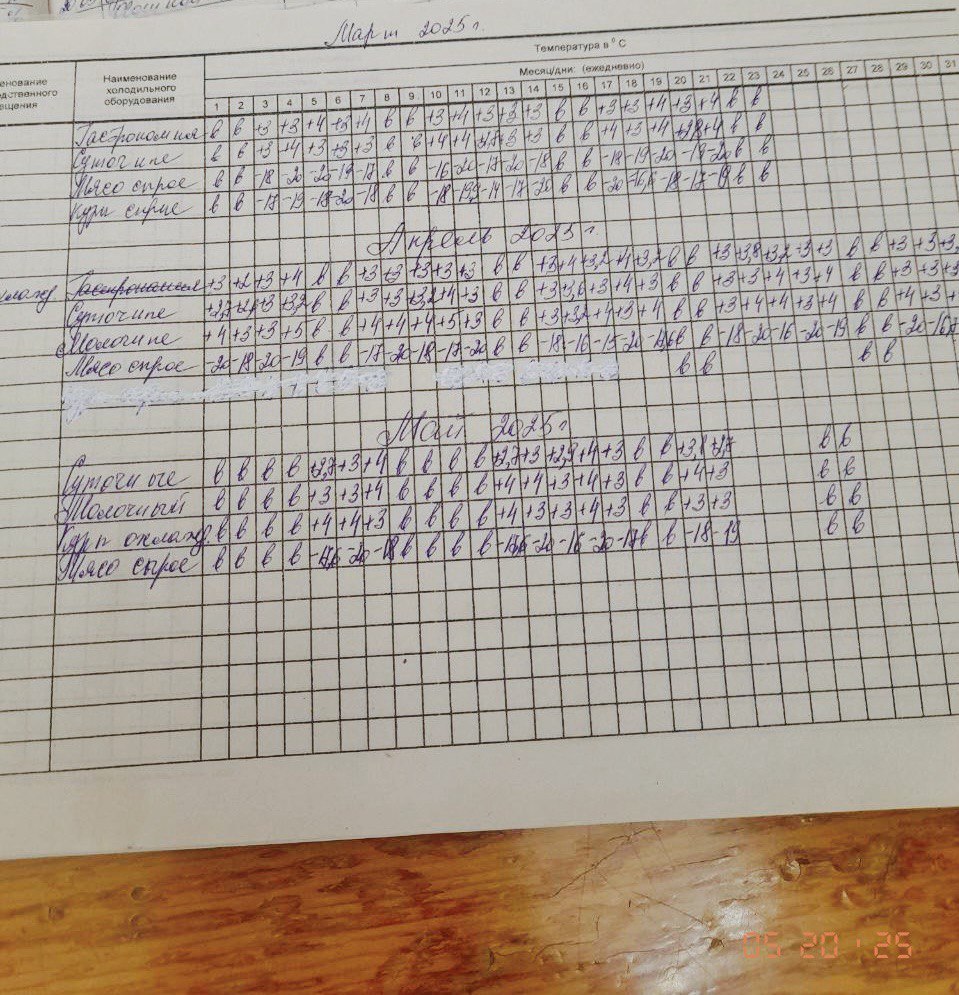 Март 2025 г.
Температура в °С
Месяц/дни: (ежедневно)
Наименование
холодильного
оборудования
1 2 3 4 5 6 7 8 9 10 11 12 13 14 15 16 17 18 19 20 21 22 23 24 25 26 27 28 29 30 31
Гастрономия в в +3 +3 +4 +3 +4 в в +3 +4 +3 +3 +3 в в +3 +3 +4 +3 +4 в в
Суточные в в +3 +4 +3 +3 +3 в в +4 +4 +3 +3 в в +4 +3 +4 +3,8 +4 в в
Мясо сырое в в -18 -20 -20 -19 -17 в в -16 -20 -17 -20 -18 в в -18 -19 -20 -19 -20 в в
Куры сырые в в -17 -19 -18 -20 -18 в в -18 -17 -20 в в -20 -18 -17 -19 в в
Апрель 2025 г
Гастрономия +3 +2 +3 +4 в в +3 +3 +3 +3 +3 в в +3 +4 +3,2 +4 в в +3 +3,8 +3,2 +3 +3 в в +3 +3
Суточные +3 +3,2 в в +3 +3 +3,2 +4 +3 в в +3 +3 +4 +3 в в +3 +3 +4 +3 +4 в в +3 +3
Молочные +4 +3 +3 +5 в в +4 +4 +4 +5 +3 в в +3 +4 +3 +4 в в +3 +4 +4 +3 +4 в в +4 +3
Мясо сырое -20 -18 -20 -19 в в -17 -20 -18 -17 -20 в в -18 -16 -15 -20 в в -18 -20 -16 -20 -19 в в -20
в в в в
Май 2025 г
Суточные в в в в +3,7 +3 +4 в в в в +3,7 +3 +2,9 +4 +3 в в +3,8 +3,7 в в
Молочный в в в в +3 +3 +4 в в в в +4 +4 +3 +4 +3 в в +4 +3 в в
Куры охлажд в в в в +4 +4 +3 в в в в +4 +3 +3 +4 +3 в в +3 +3 в в
Мясо сырое в в в в -20 -18 в в в в -20 -16 -20 -17 в в -18 -19 в в
05 20 '25